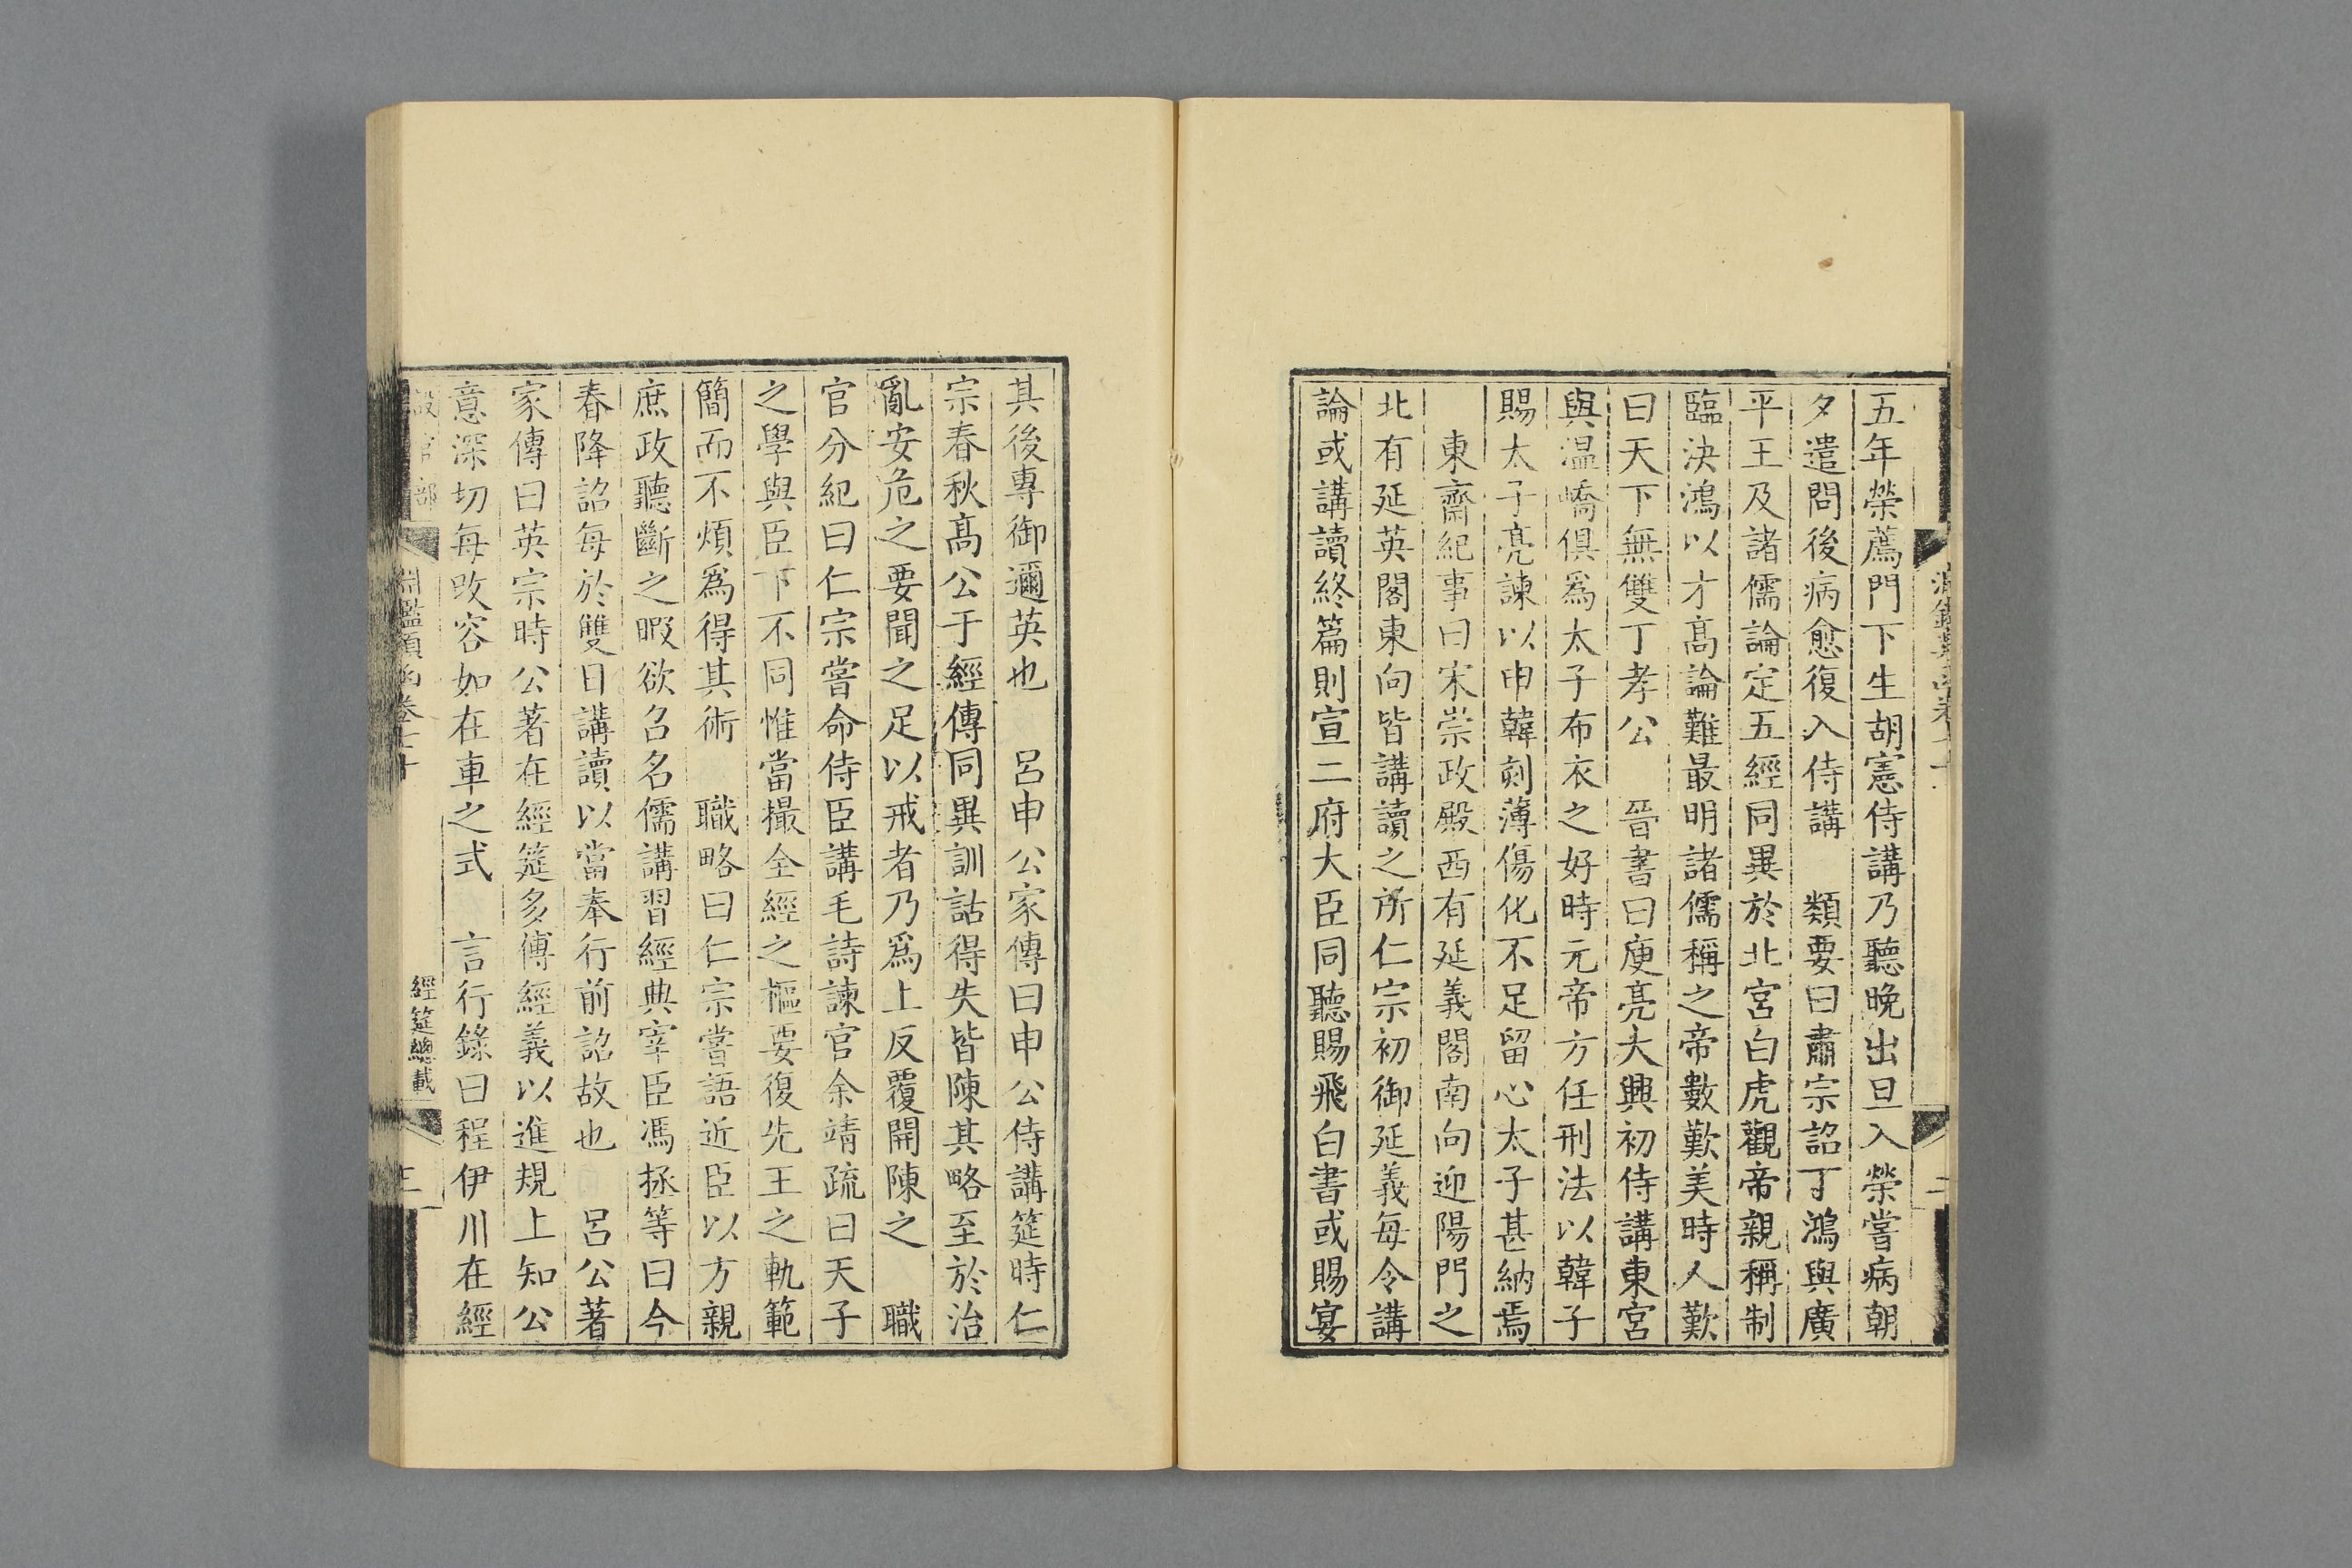 五年榮薦門下生胡憲侍講乃聽晚出旦入榮嘗病朝
夕遣問後病愈復入侍講　類要曰肅宗詔丁鴻與廣
平王及諸儒論定五經同異於北宮白虎觀帝親稱制
臨決鴻以才髙論難最明諸儒稱之帝數歎美時人歎
曰天下無雙丁孝公　晉書曰庾亮大興初侍講東宮
與温嶠俱爲太子布衣之好時元帝方任刑法以韓子
賜太子亮諫以申韓刻薄傷化不足留心太子甚納焉
東齋紀事曰宋崇政殿西有延義閣南向迎陽門之
北有延英閣東向皆講讀之所仁宗初御延義每令講
論或講讀終篇則宣二府大臣同聽賜飛白書或賜宴
其後專御邇英也　呂申公家傳曰申公侍講筵時仁
宗春秋髙公于經傳同異訓詁得失皆陳其略至於治
亂安危之要聞之足以戒者乃爲上反覆開陳之　職
官分紀曰仁宗嘗命侍臣講毛詩諫官余靖疏曰天子
之學與臣下不同惟當撮全經之樞要復先王之軌範
簡而不煩爲得其術　職略曰仁宗嘗語近臣以方親
庶政聽斷之暇欲召名儒講習經典宰臣馮拯等曰今
春降詔每於雙日講讀以當奉行前詔故也　呂公著
家傳曰英宗時公著在經筵多傅經義以進規上知公
意深切每改容如在車之式　言行錄曰程伊川在經
設官部　淵鑑類函卷七十　經筵總載